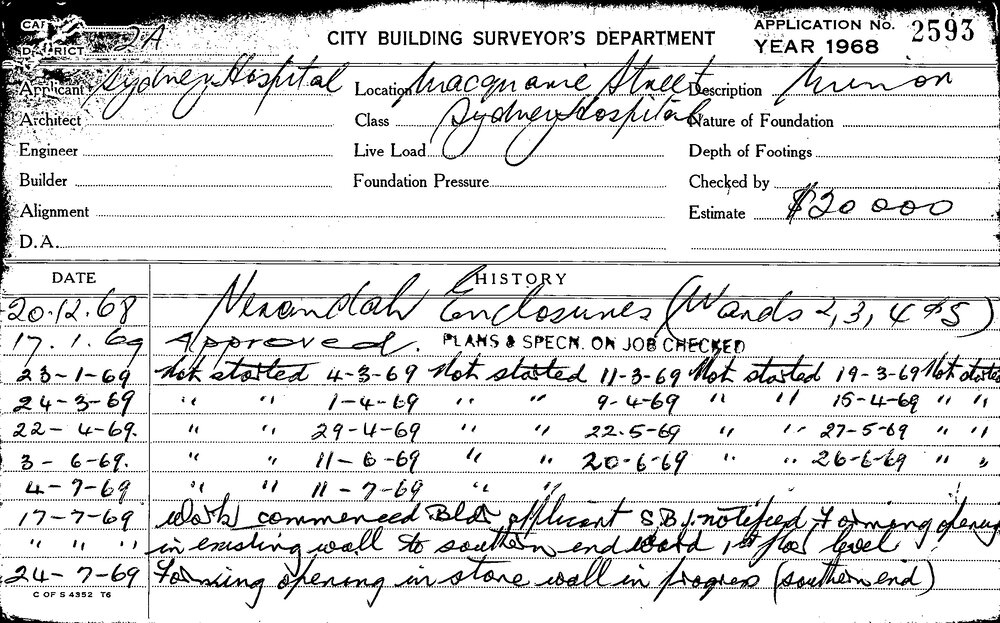 CITY BUILDING SURVEYOR'S DEPARTMENT
APPLICATION No. 2593
YEAR 1968
DISTRICT 2A
Applicant Sydney Hospital Location Macquarie Street Description Minor
Architect Class Sydney Hospital Nature of Foundation
Engineer Live Load Depth of Footings
Builder Foundation Pressure Checked by
Alignment Estimate $20 000
D.A.
DATE HISTORY
20.12.68 Verandah Enclosures (Wards 2, 3, 4 & 5)
17.1.69 Approved. PLANS & SPECN. ON JOB CHECKED
23-1-69 Not started 4-3-69 Not started 11-3-69 Not started 19-3-69 Not started
24-3-69 " " 1-4-69 " " 9-4-69 " " 15-4-69 " "
22-4-69. " " 29-4-69 " " 22.5-69 " " 27-5-69 " "
3-6-69. " " 11-6-69 " " 20-6-69 " " 26-6-69 " "
4-7-69 " " 11-7-69 " "
17-7-69 work commenced Bldr applicant S.B.I. notified. Forming opening
" " " in existing wall to southern end ward 1st floor level
24-7-69 Forming opening in stone wall in progress (southern end)
C OF S 4352 T6